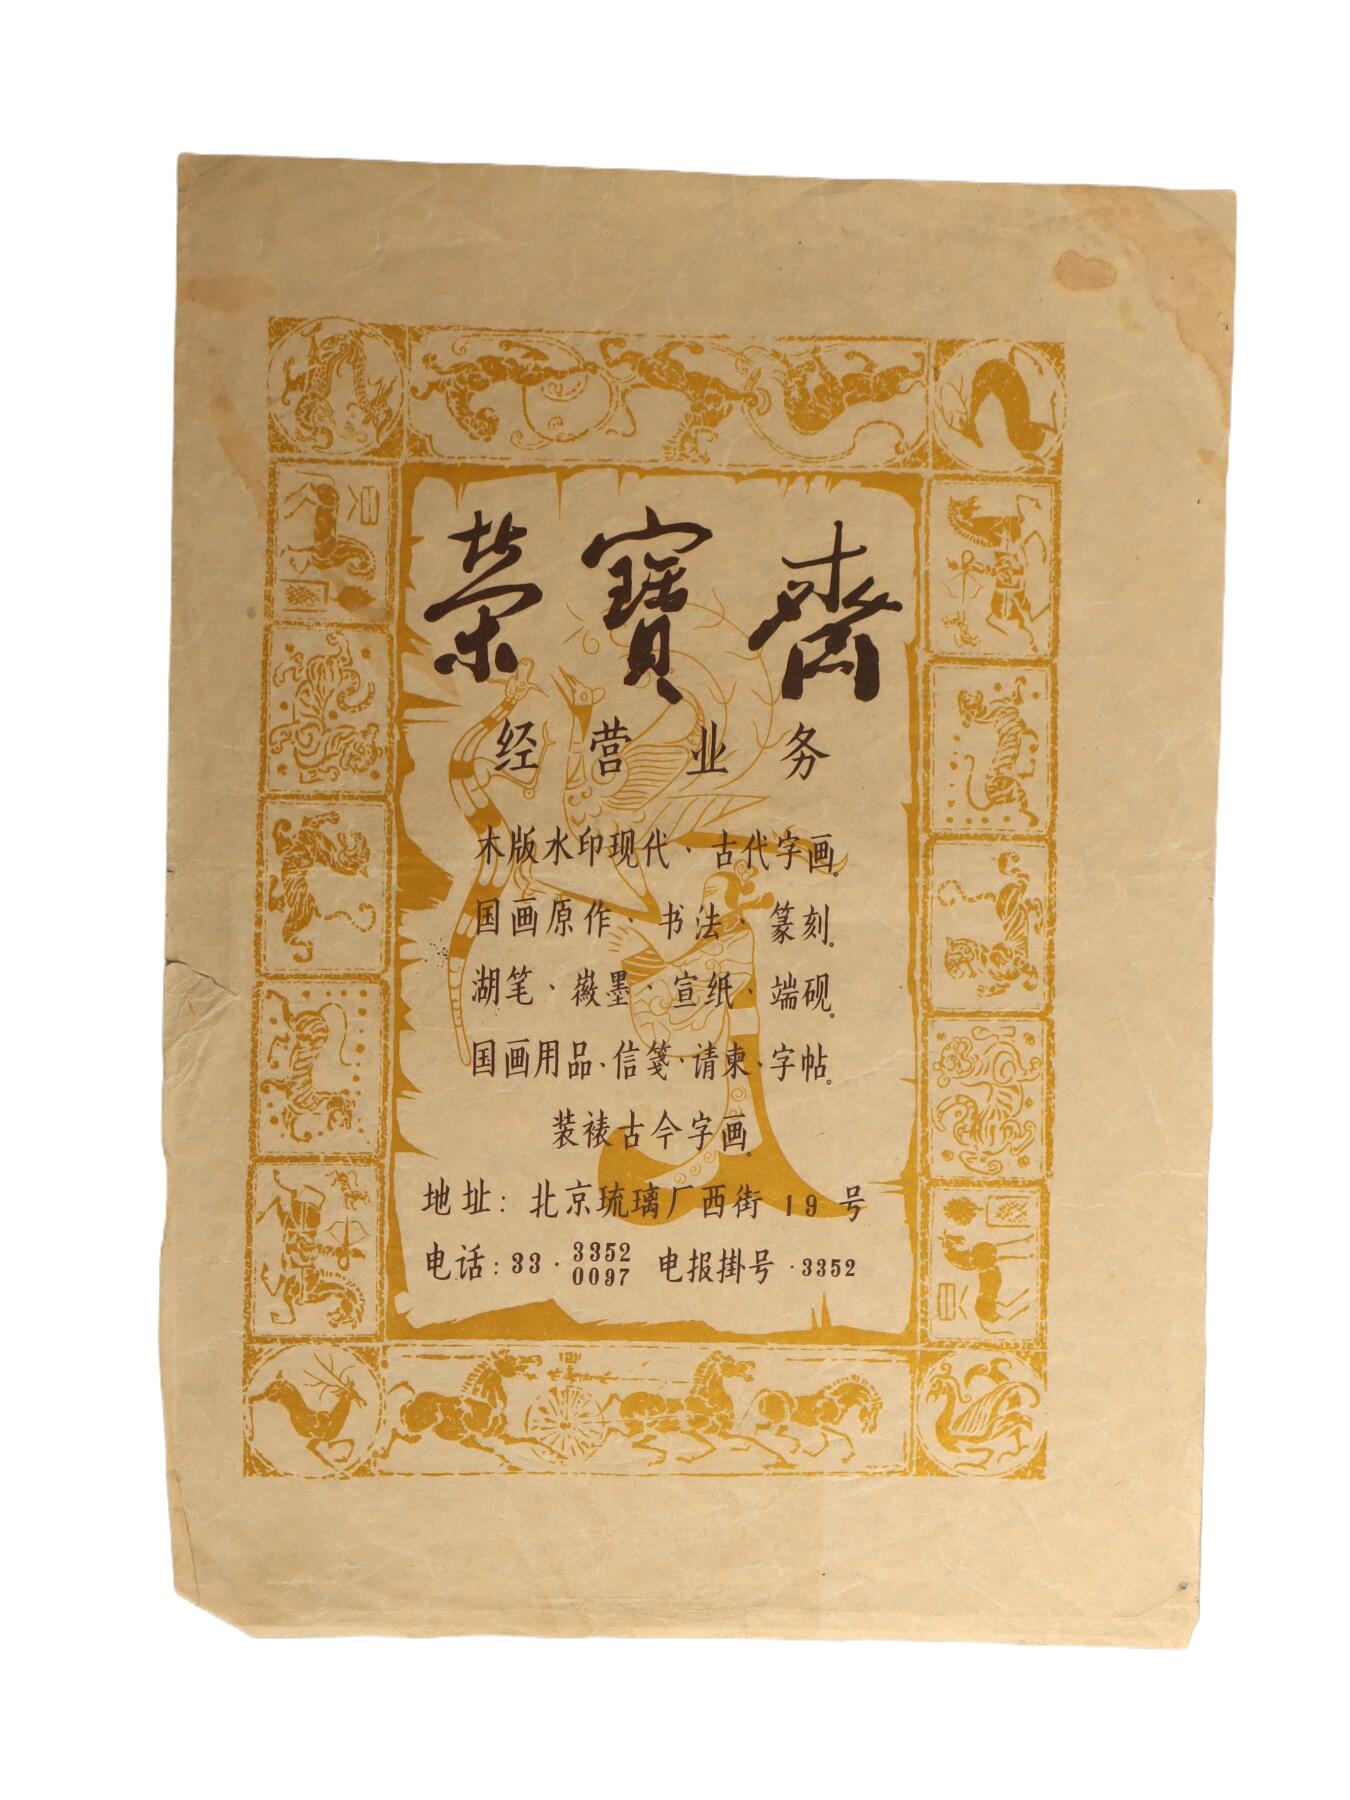 荣寶齋
经营业务
木版水印现代、古代字画。
国画原作、书法、篆刻。
湖笔、徽墨、宣纸、端砚。
国画用品、信笺、请柬、字帖。
装裱古今字画。
地址：北京琉璃厂西街 19 号
电话：33·3352 0097 电报掛号·3352